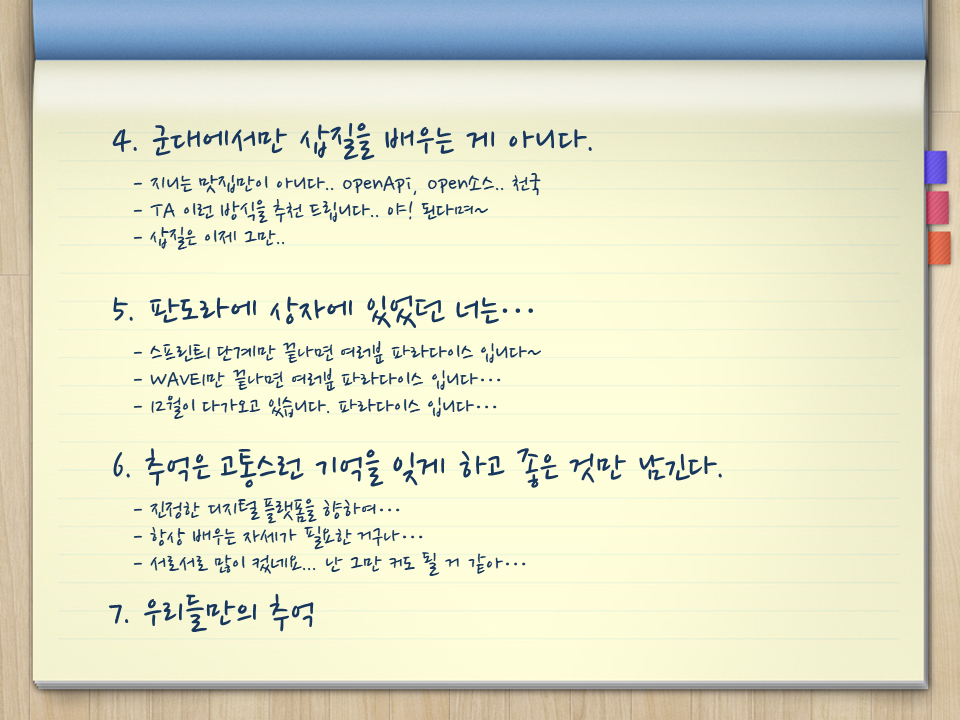 4. 군대에서만 삽질을 배우는 게 아니다.
- 지니는 맛집만이 아니다.. openApi, open소스.. 천국
- TA 이런 방식을 추천 드립니다.. 야! 된다며~
- 삽질은 이제 그만..
5. 판도라에 상자에 있었던 너는···
- 스프린트1 단계만 끝나면 여러분 파라다이스 입니다~
- WAVE1만 끝나면 여러분 파라다이스 입니다···
- 12월이 다가오고 있습니다. 파라다이스 입니다···
6. 추억은 고통스런 기억을 잊게 하고 좋은 것만 남긴다.
- 진정한 디지털 플랫폼을 향하여···
- 항상 배우는 자세가 필요한 거구나···
- 서로서로 많이 컸네요... 난 그만 커도 될 거 같아···
7. 우리들만의 추억